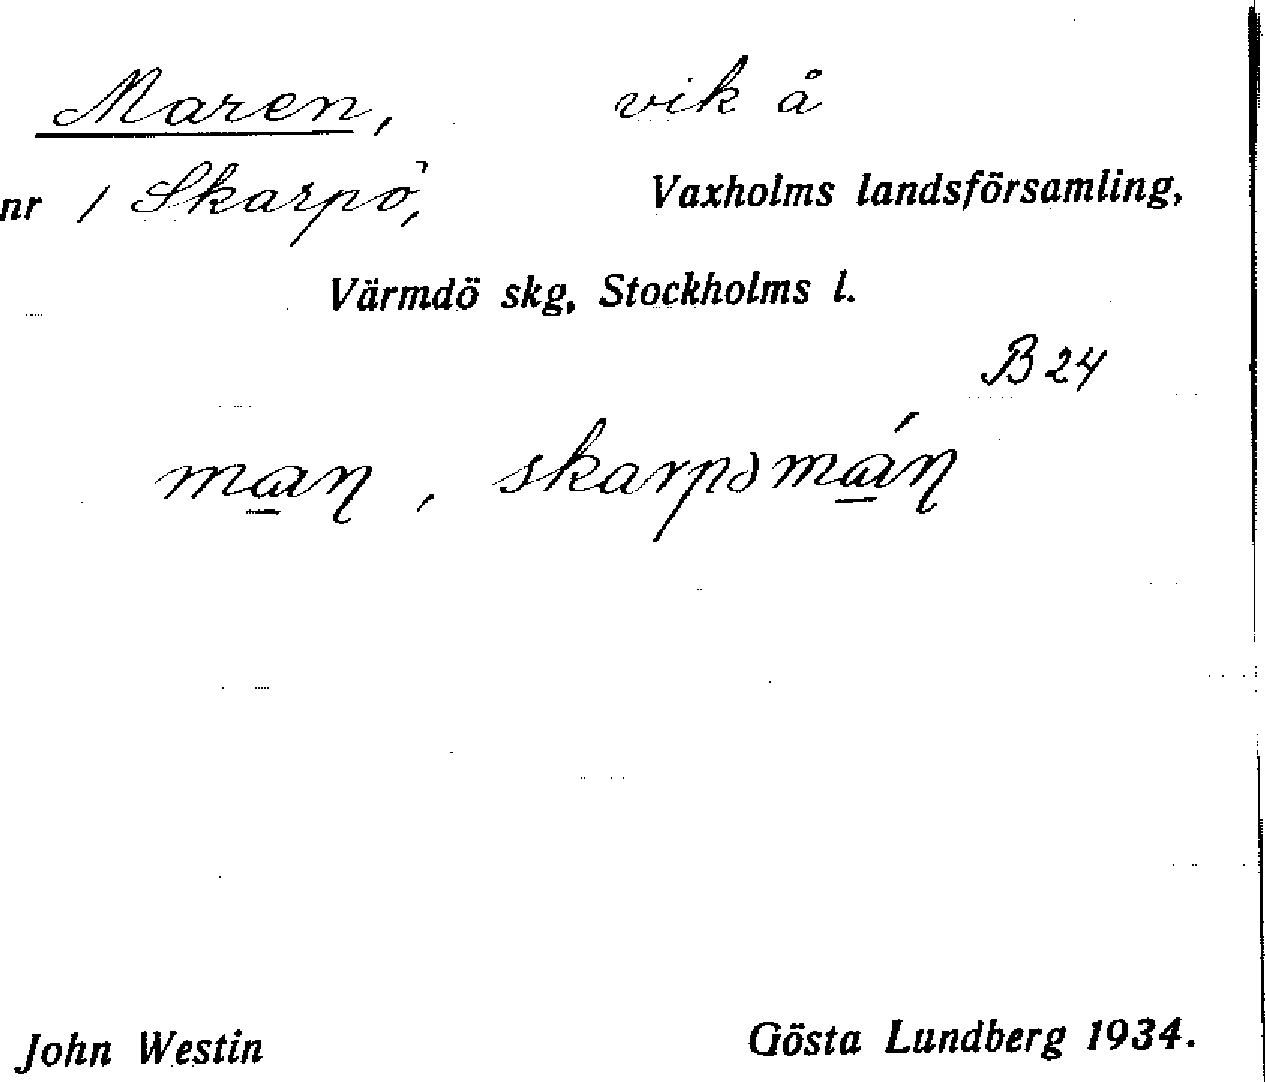 Maren, vik å
nr 1 Skarpö, Vaxholms landsförsamling,
Värmdö skg, Stockholms l.
B 24
ma̲ŋ, skarpəmá̲ŋ
John Westin Gösta Lundberg 1934.